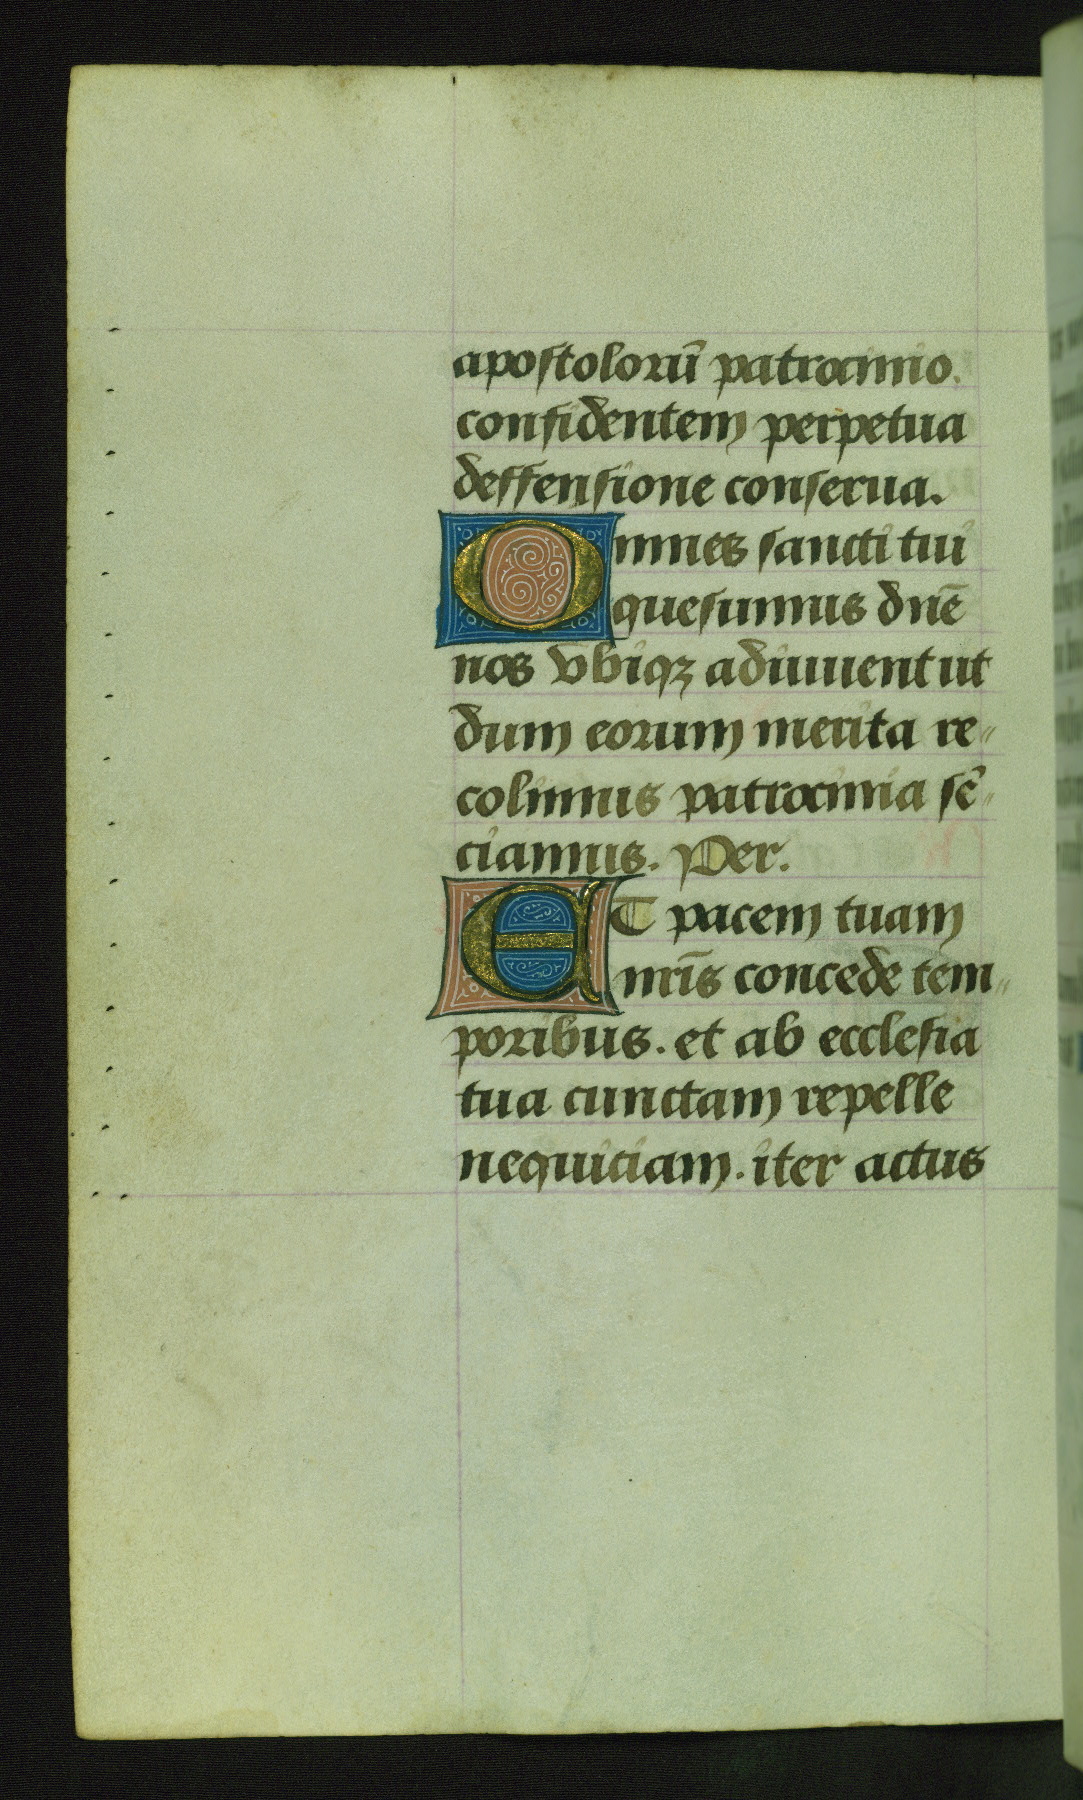 apostolorū patrocinio.
confidentem perpetua
deffensione conserua.
Omnes sancti tui
quesumus dn̄e
nos vbiqꝫ adiuuent ut
dum eorum merita re-
colimus patrocinia sē-
ciamus. Per.
ET pacem tuam
nrīs concede tem-
poribus. et ab ecclesia
tua cunctam repelle
nequiciam. iter actus